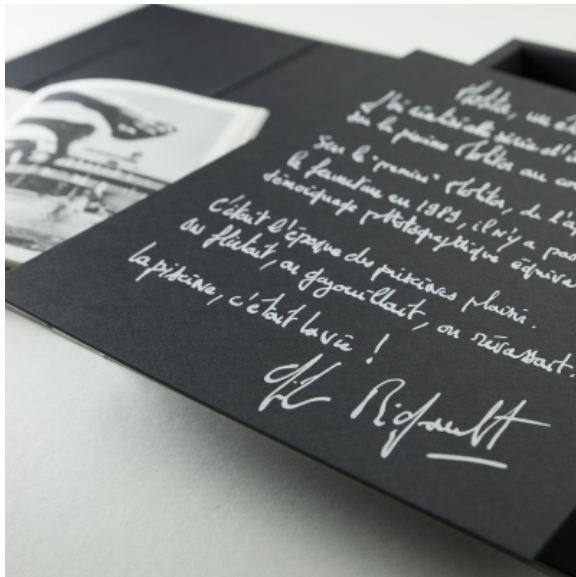 Molitor, une ét
J'ai réalisé cette série d'i
sur la piscine Molitor au cou
Sur le "premier" Molitor, de l'a
la fermeture en 1989, il n'y a pas
témoignage photographique équiva
C'était l'époque des piscines plaisir.
On flirtait, on gazouillait, on rêvassait.
la piscine, c'était la vie !
Gil Rigoulet